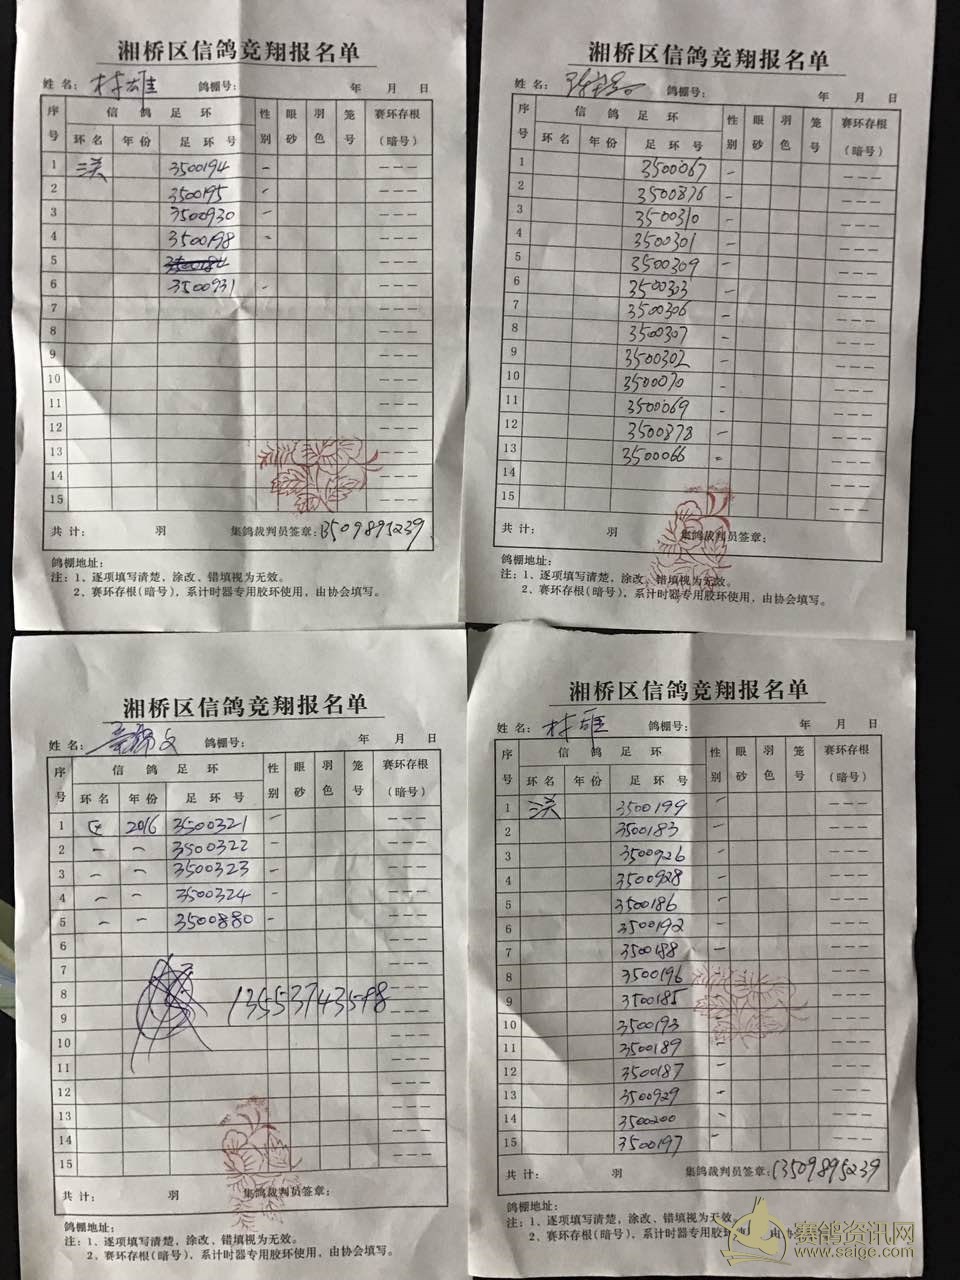 湘桥区信鸽竞翔报名单
姓 名： 林雄 鸽棚号： 年 月 日
序号 信 鸽 足 环 性别 眼砂 羽色 笼号 赛环存根（暗号）
环 名 年 份 足 环 号
1 3500194 - ---
2 3500195 - ---
3 3500930 - ---
4 3500198 - ---
5 3500184 ---
6 3500931 - ---
7 ---
8 ---
9 ---
10 ---
11 ---
12 ---
13 ---
14 ---
15 ---
共 计： 羽 集鸽裁判员签章：13509895239
鸽棚地址：
注：1、逐项填写清楚，涂改、错填视为无效。
2、赛环存根(暗号)，系计时器专用胶环使用，由协会填写。
湘桥区信鸽竞翔报名单
姓 名： 鸽棚号： 年 月 日
序号 信 鸽 足 环 性别 眼砂 羽色 笼号 赛环存根（暗号）
环 名 年 份 足 环 号
1 3500067 - ---
2 3500876 - ---
3 3500310 - ---
4 3500301 - ---
5 3500309 - ---
6 3500303 - ---
7 3500306 - ---
8 3500307 - ---
9 3500302 - ---
10 3500070 - ---
11 3500069 - ---
12 3500878 - ---
13 3500066 - ---
14 ---
15 ---
共 计： 羽 集鸽裁判员签章：
鸽棚地址：
注：1、逐项填写清楚，涂改、错填视为无效。
2、赛环存根(暗号)，系计时器专用胶环使用，由协会填写。
湘桥区信鸽竞翔报名单
姓 名： 鸽棚号： 年 月 日
序号 信 鸽 足 环 性别 眼砂 羽色 笼号 赛环存根（暗号）
环 名 年 份 足 环 号
1 2016 3500321 - ---
2 - - 3500322 - ---
3 - - 3500323 - ---
4 - - 3500324 - ---
5 - - 3500880 - ---
6 ---
7 ---
8 13553743598 ---
9 ---
10 ---
11 ---
12 ---
13 ---
14 ---
15 ---
共 计： 羽 集鸽裁判员签章：
鸽棚地址：
注：1、逐项填写清楚，涂改、错填视为无效。
2、赛环存根(暗号)，系计时器专用胶环使用，由协会填写。
湘桥区信鸽竞翔报名单
姓 名： 林雄 鸽棚号： 年 月 日
序号 信 鸽 足 环 性别 眼砂 羽色 笼号 赛环存根（暗号）
环 名 年 份 足 环 号
1 3500199 - ---
2 3500183 - ---
3 3500926 - ---
4 3500928 - ---
5 3500186 - ---
6 3500192 - ---
7 3500188 - ---
8 3500196 - ---
9 3500185 - ---
10 3500193 - ---
11 3500189 - ---
12 3500187 - ---
13 3500929 - ---
14 3500200 - ---
15 3500197 - ---
共 计： 羽 集鸽裁判员签章：13509895239
鸽棚地址：
注：1、逐项填写清楚，涂改、错填视为无效。
2、赛环存根(暗号)，系计时器专用胶环使用，由协
赛鸽资讯网
www.saige.com